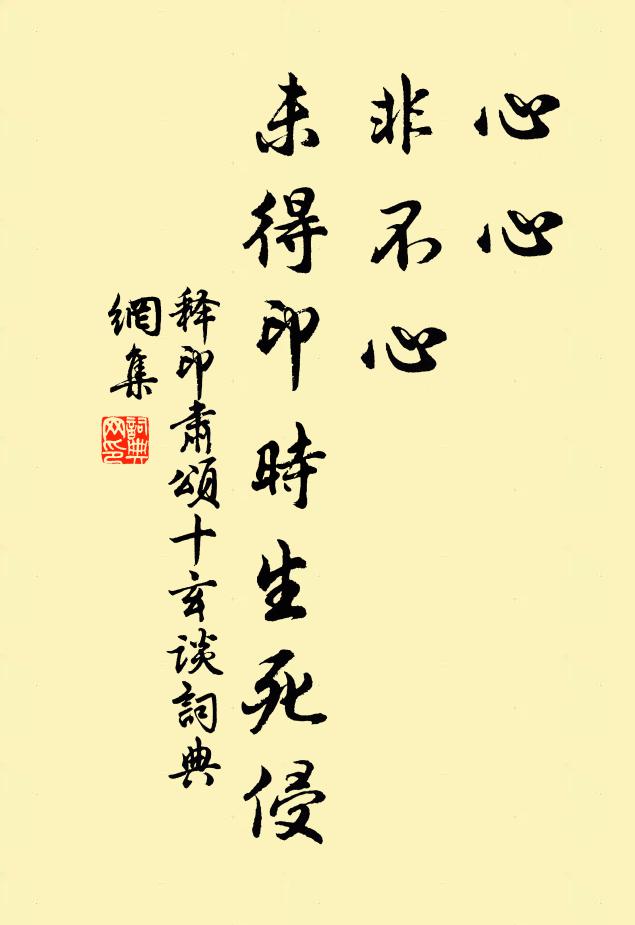 心心
非不心
未得印時生死侵
释印肅頌十玄談詞典
網集
詞典
网印